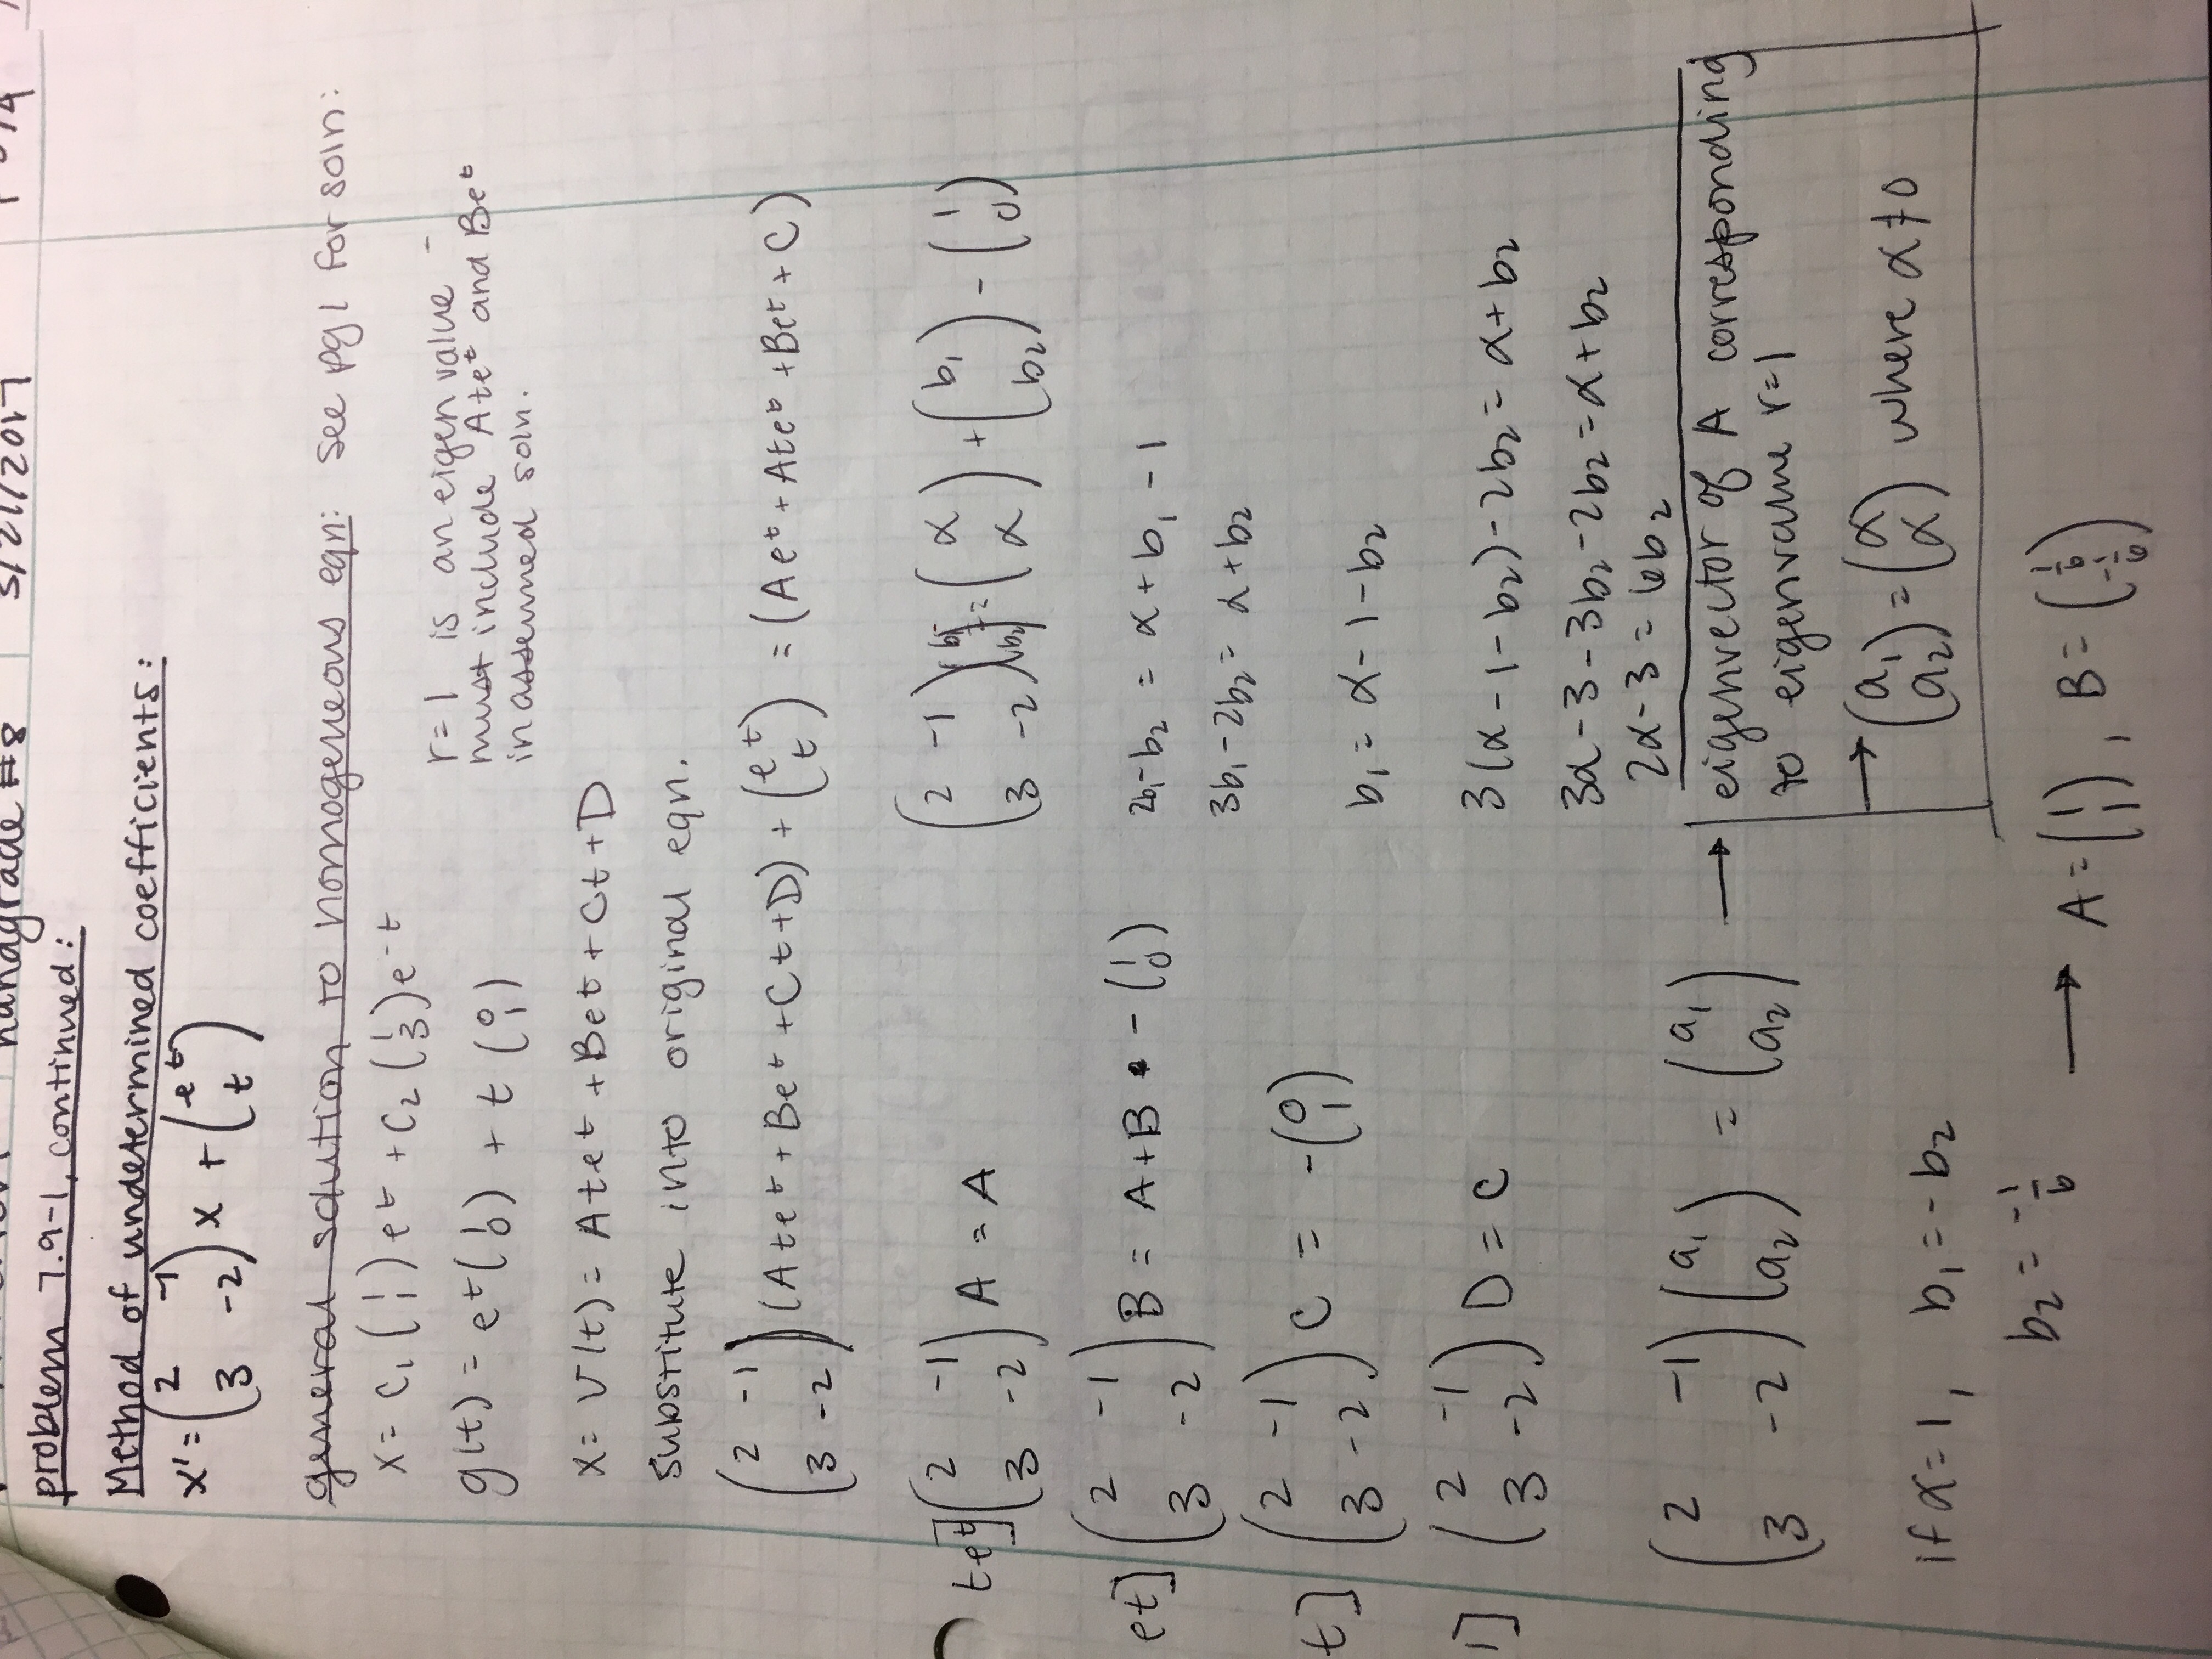 handgrade #8 5/21/2017
problem 7.9-1, continued:
Method of undetermined coefficients:
x' = (2 -1
3 -2) x + (e^t
t)
general solution to homogeneous eqn: see pg 1 for soln:
x = C₁ (1
1) e^t + C₂ (1
3) e^-t
g(t) = e^t (1
0) + t (0
1)
r=1 is an eigen value -
must include Ate^t and Be^t
in assumed soln.
x = V(t) = Ate^t + Be^t + Ct + D
substitute into original eqn.
(2 -1
3 -2) (Ate^t + Be^t + Ct + D) + (e^t
t) = (Ae^t + Ate^t + Be^t + C)
te^t] (2 -1
3 -2) A = A
e^t] (2 -1
3 -2) B = A+B - (1
0)
t] (2 -1
3 -2) C = -(0
1)
1] (2 -1
3 -2) D = C
(2 -1
3 -2) (b₁
b₂) = (α
α) + (b₁
b₂) - (1
0)
2b₁ - b₂ = α + b₁ - 1
3b₁ - 2b₂ = α + b₂
b₁ = α - 1 - b₂
3(α - 1 - b₂) - 2b₂ = α + b₂
3α - 3 - 3b₂ - 2b₂ = α + b₂
2α - 3 = 6b₂
(2 -1
3 -2) (a₁
a₂) = (a₁
a₂) →
eigenvector of A corresponding
to eigenvalue r=1
→ (a₁
a₂) = (α
α) where α ≠ 0
if α = 1, b₁ = -b₂
b₂ = -1/6
→ A = (1
1), B = (1/6
-1/6)